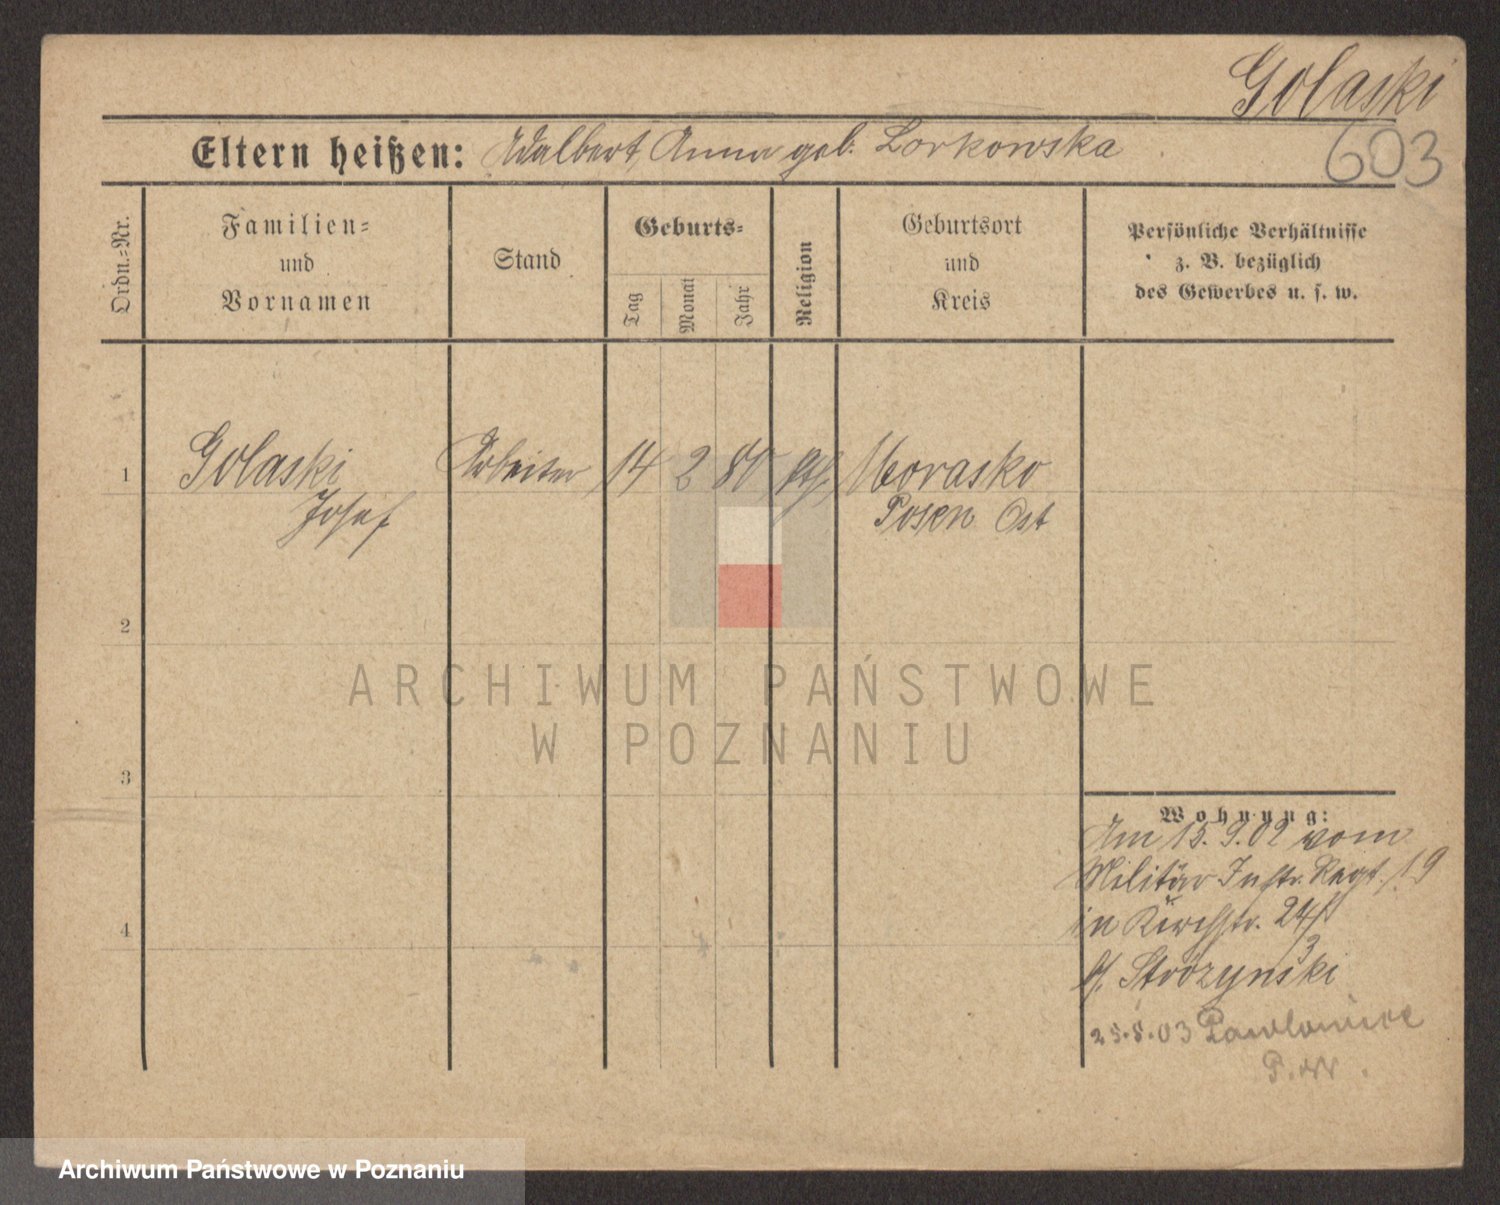 Golaski
603
Eltern heißen: Adalbert, Anna geb. Lorkowska
Ordn.-Nr.
Familien=
und
Vornamen
Stand
Geburts=
Tag
Monat
Jahr
Religion
Geburtsort
und
Kreis
Persönliche Verhältnisse
z. B. bezüglich
des Gewerbes u. s. w.
1
Golaski
Josef
Arbeiter
14
2
80
kth.
Morasko
Posen Ost
2
3
4
ARCHIWUM PAŃSTWOWE
W POZNANIU
Wohnung:
Am 15. 9. 02 vom
Militär Inftr. Regt. 19
in Kirchstr. 24/
3
b/ Strözynski
25.8.03 Pawlowice
P. W.
Archiwum Państwowe w Poznaniu